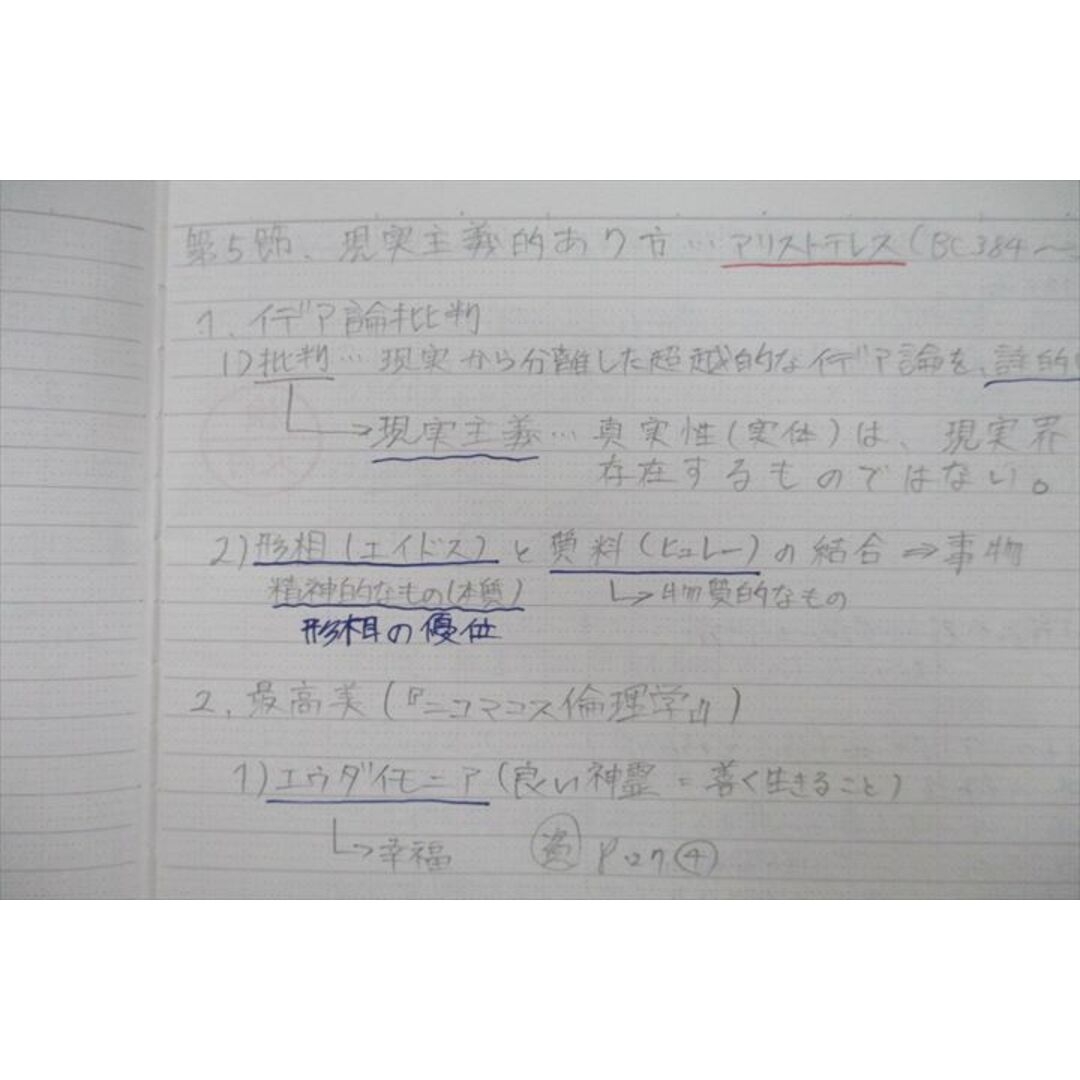 第5節、現実主義的あり方…アリストテレス(BC384〜
1、イデア論批判
1)批判…現実から分離した超越的なイデア論を、詩的
→現実主義…真実性(実体)は、現実界
存在するものではない。
2)形相(エイドス)と質料(ヒュレー)の結合⇒事物
精神的なもの(本質) →物質的なもの
形相の優位
2、最高美(『ニコマコス倫理学』)
1)エウダイモニア(良い神霊=善く生きること)
→幸福 資 P.27④